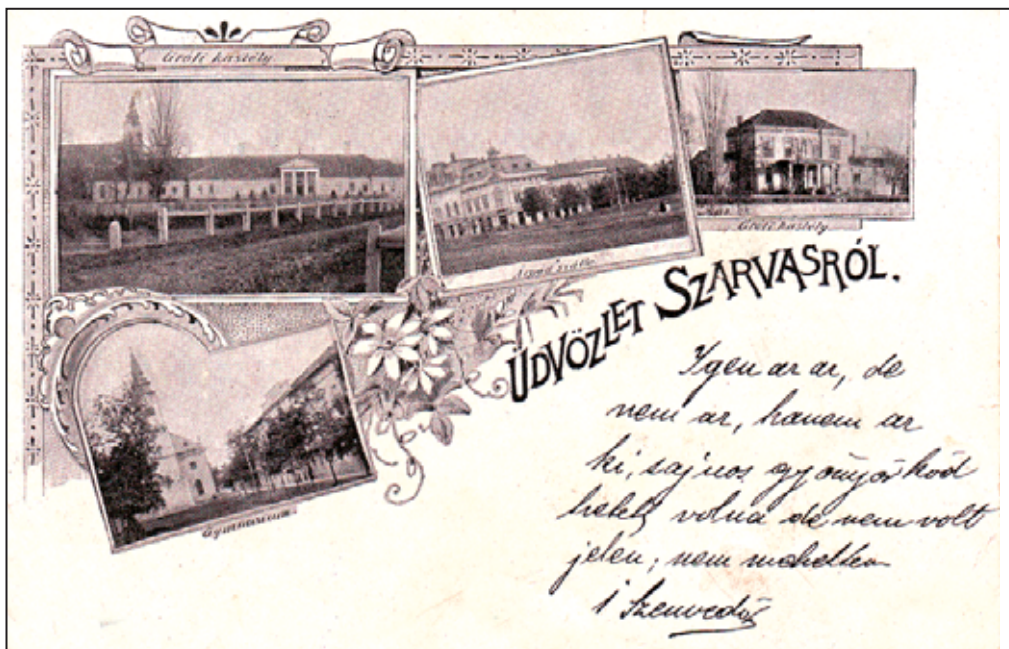 Grófi kastély.
Árpád szálló
Grófi kastély
Gymnasium.
ÜDVÖZLET SZARVASRÓL.
Igen az az, de
nem az, hanem az
ki, sajnos gyönyörköd
hetett volna de nem volt
jelen; nem mehettem
Szenvedő